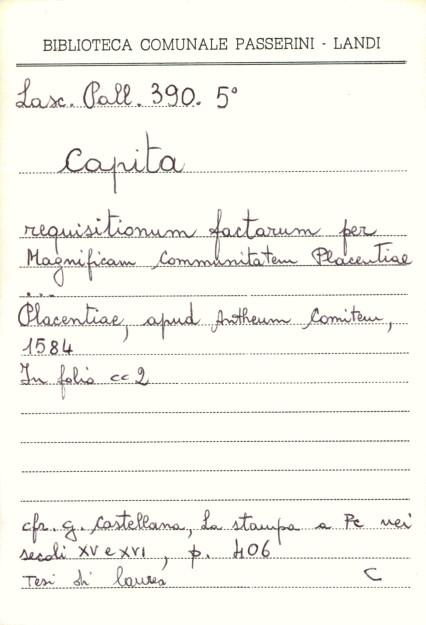 BIBLIOTECA COMUNALE PASSERINI - LANDI
Lasc. Pall. 390. 5°
Capita
requisitionum factarum per
Magnificam Communitatem Placentiae
...
Placentiae, apud Antheum Comitem,
1584
In folio cc 2
cfr. G. Castellana, La stampa a Pc nei
secoli XV e XVI, p. 406
Tesi di laurea C